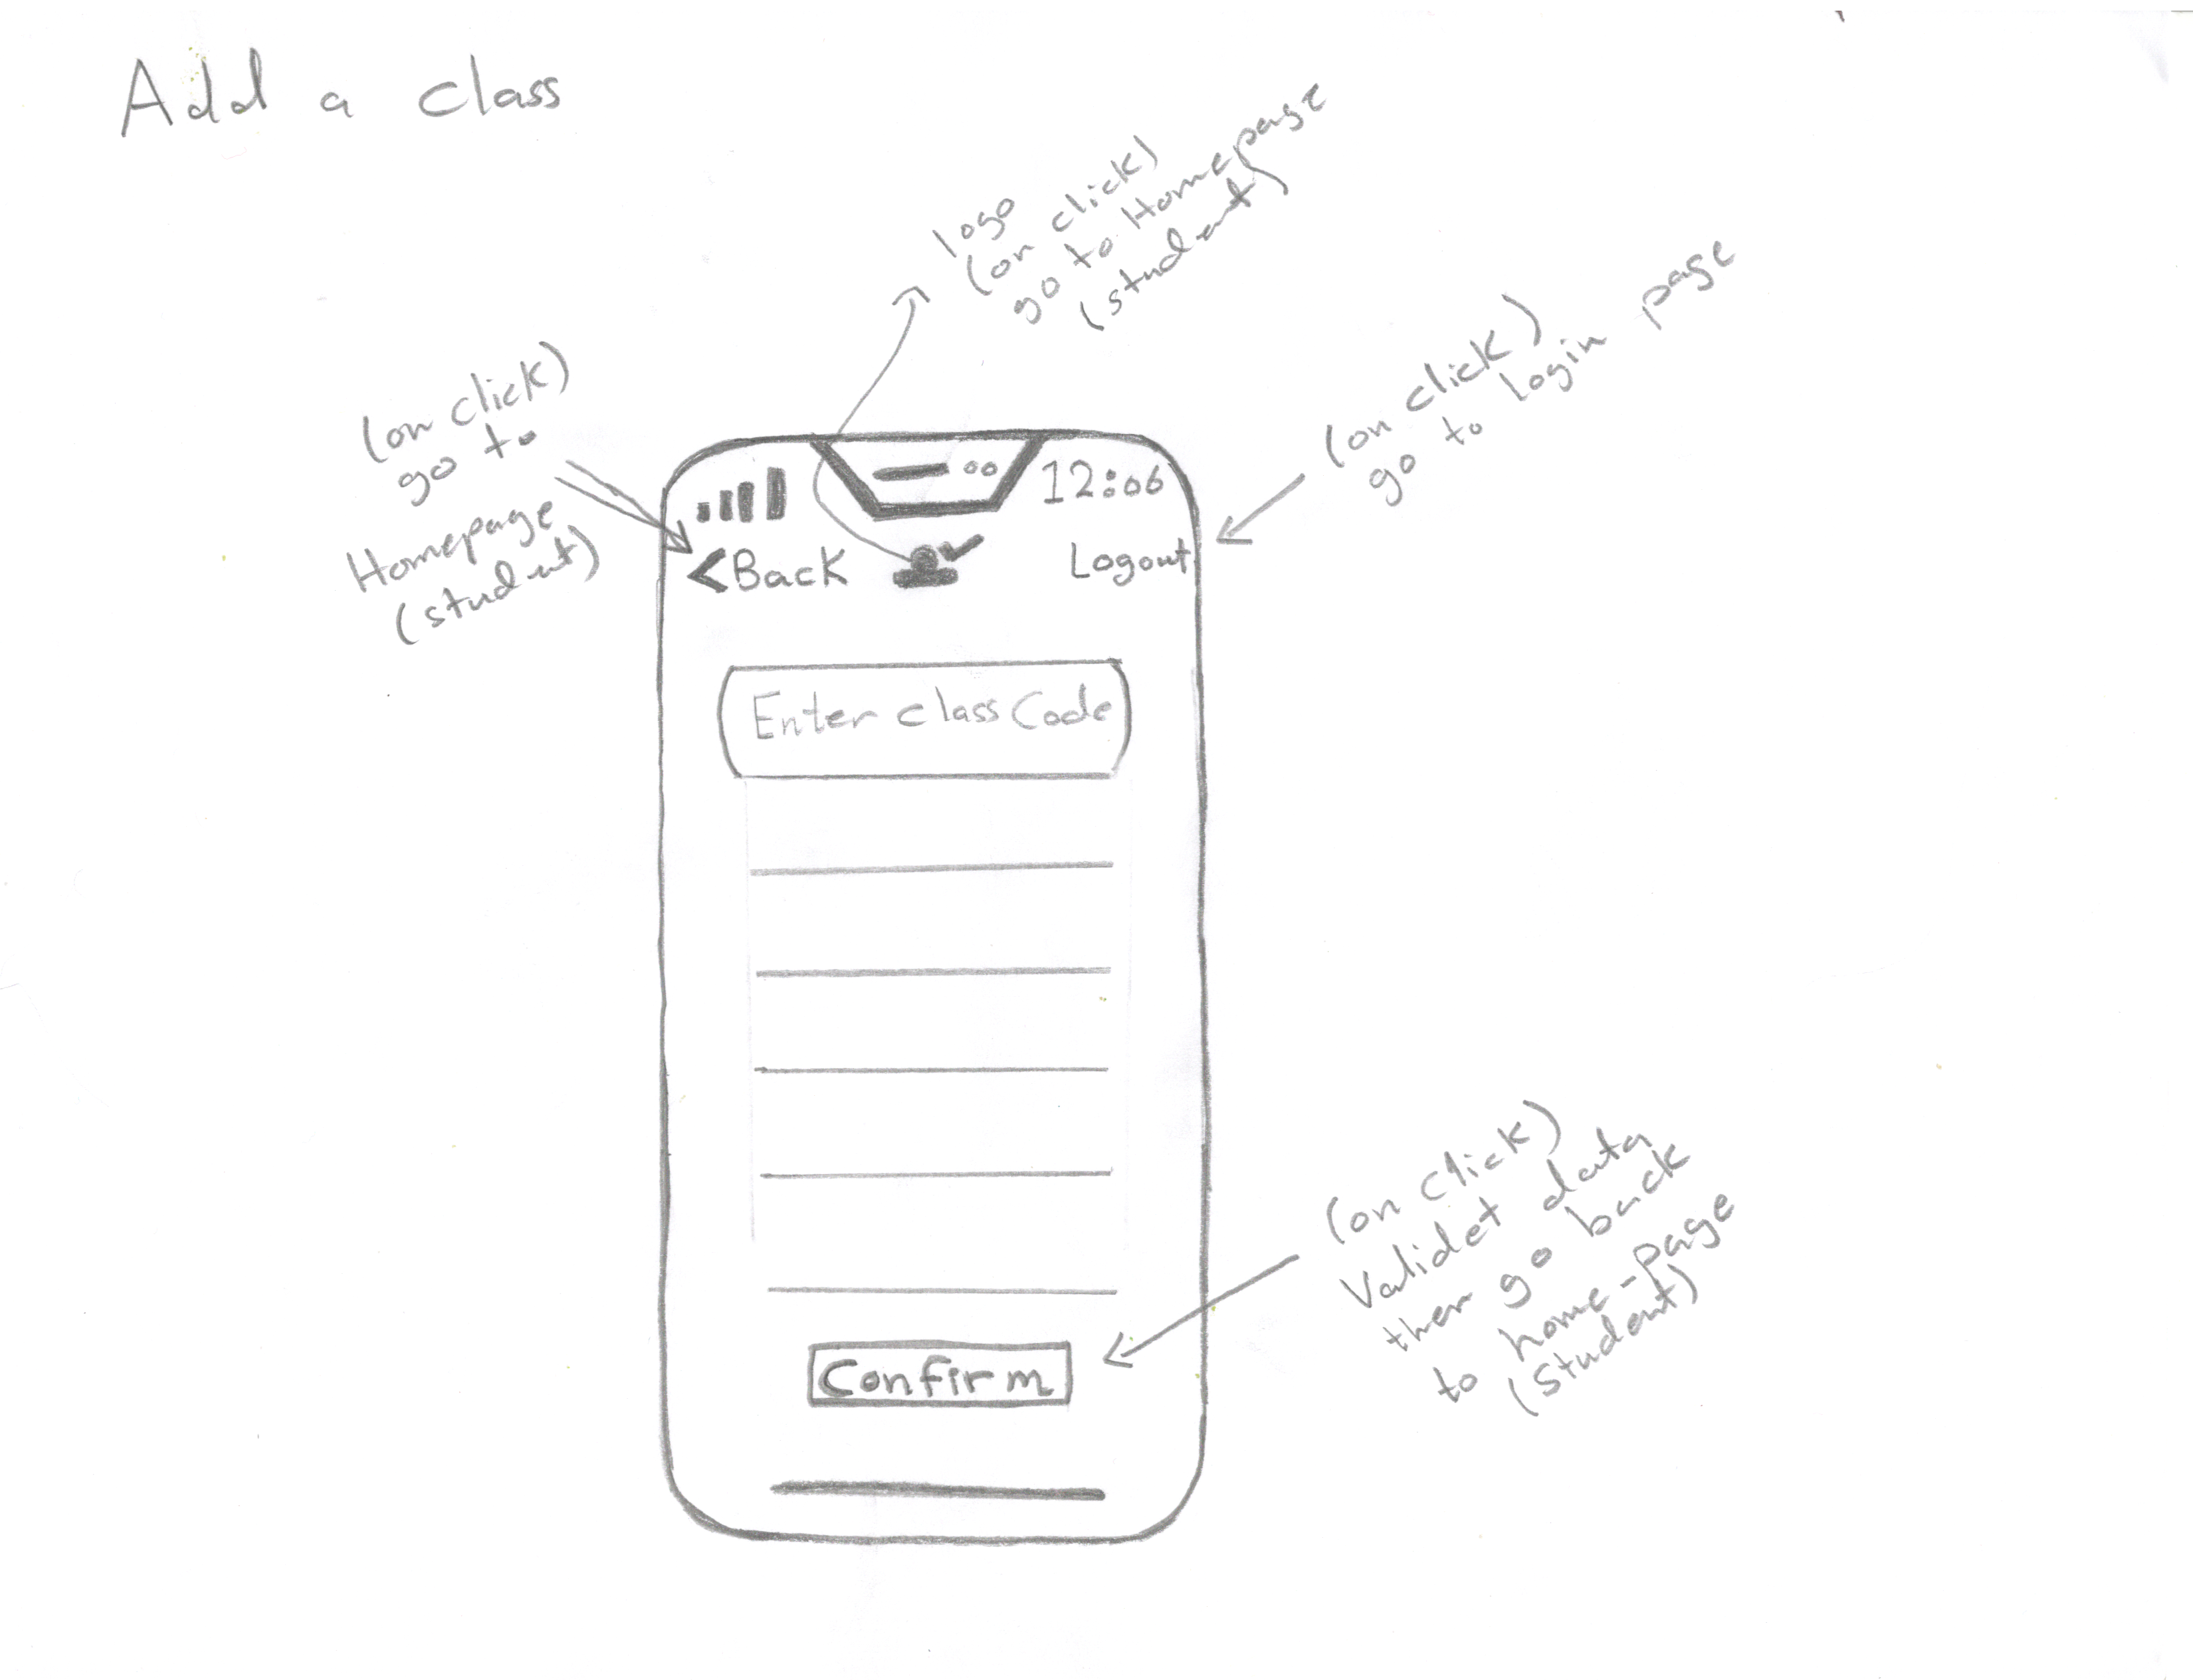 Add a class
logo
(on click)
go to Homepage
(student)
(on click)
go to
Homepage
(student)
(on click)
go to login page
12:06
<Back
Logout
Enter class Code
(on click)
Validet data
then go back
to home-page
(Student)
Confirm